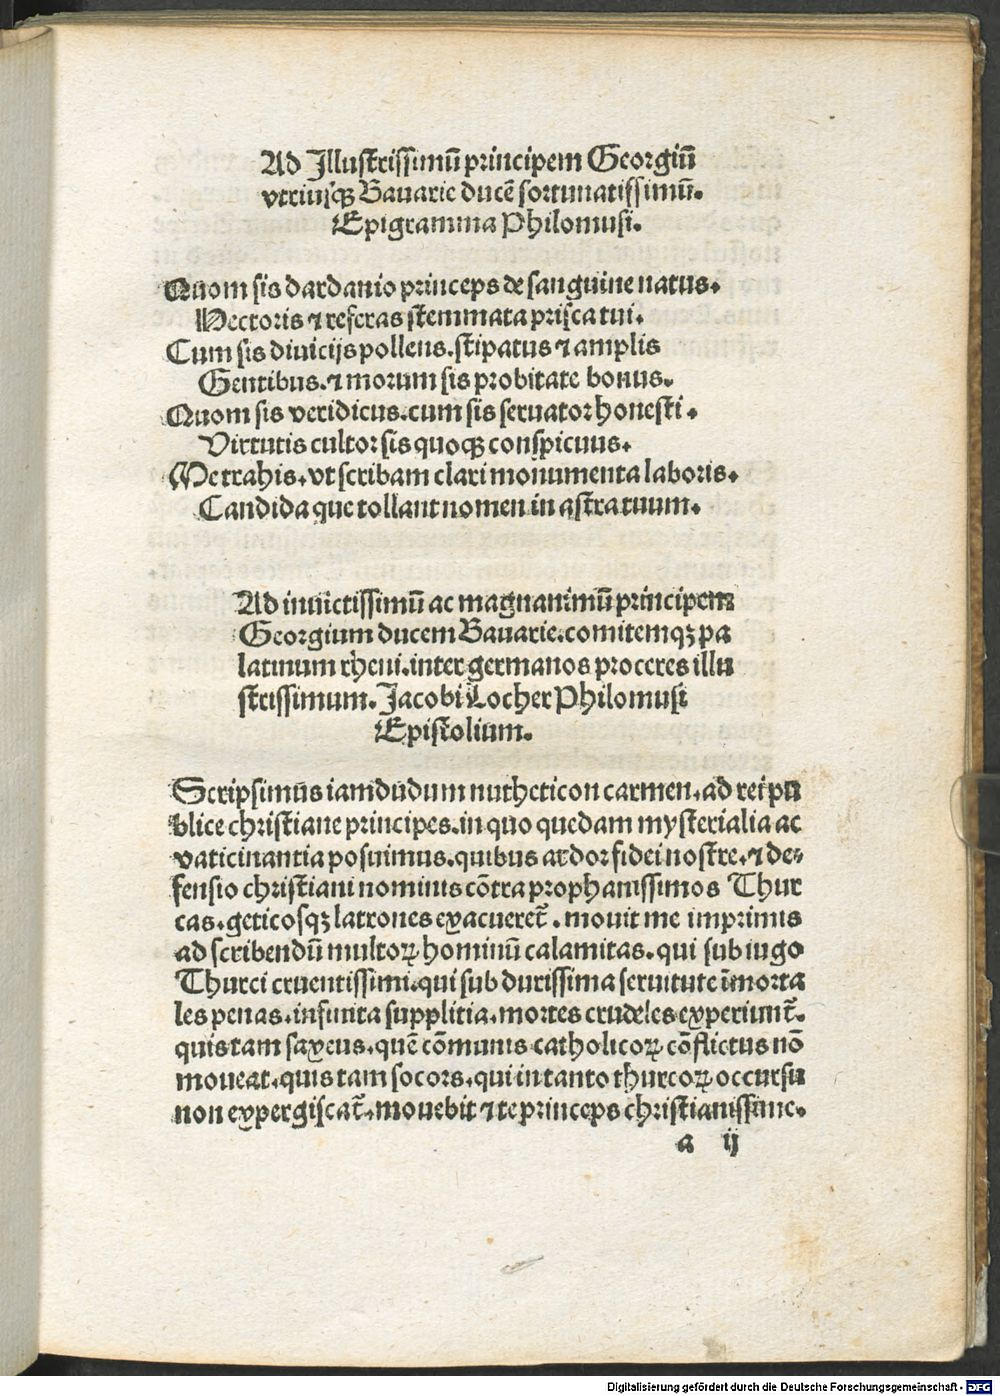 Ad Illustrissimū principem Georgiū
vtriusqꝫ Bauarie ducē fortunatissimū.
Epigramma Philomusi.
Quom sis dardanio princeps de sanguine natus.
Hectoris ⁊ referas stemmata prisca tui.
Cum sis diuicijs pollens. stipatus ⁊ amplis
Gentibus. ⁊ morum sis probitate bonus.
Quom sis veridicus. cum sis seruator honesti.
Virtutis cultor sis quoqꝫ conspicuus.
Me trahis. vt scribam clari monumenta laboris.
Candida que tollant nomen in astra tuum.
Ad inuictissimū ac magnanimū principem
Georgium ducem Bauarie. comitemqꝫ pa
latinum rheni. inter germanos proceres illu
strissimum. Jacobi Locher Philomusi
Epistolium.
Scripsimus iamdudum nutheticon carmen. ad rei pu
blice christiane principes. in quo quedam mysterialia ac
vaticinantia posuimus. quibus ardor fidei nostre. ⁊ de-
fensio christiani nominis cōtra prophanissimos Thur
cas. geticosqꝫ latrones exacueret̄. mouit me imprimis
ad scribendū multoꝝ hominū calamitas. qui sub iugo
Thurci cruentissimi. qui sub durissima seruitute īmorta
les penas. infinita supplitia. mortes crudeles experiunt̄.
quis tam saxeus. quē cōmunis catholicoꝝ cōflictus nō
moueat. quis tam socors. qui in tanto thurcoꝝ occursu
non expergiscat̄. mouebit ⁊ te princeps christianissime.
a ij
Digitalisierung gefördert durch die Deutsche Forschungsgemeinschaft - DFG